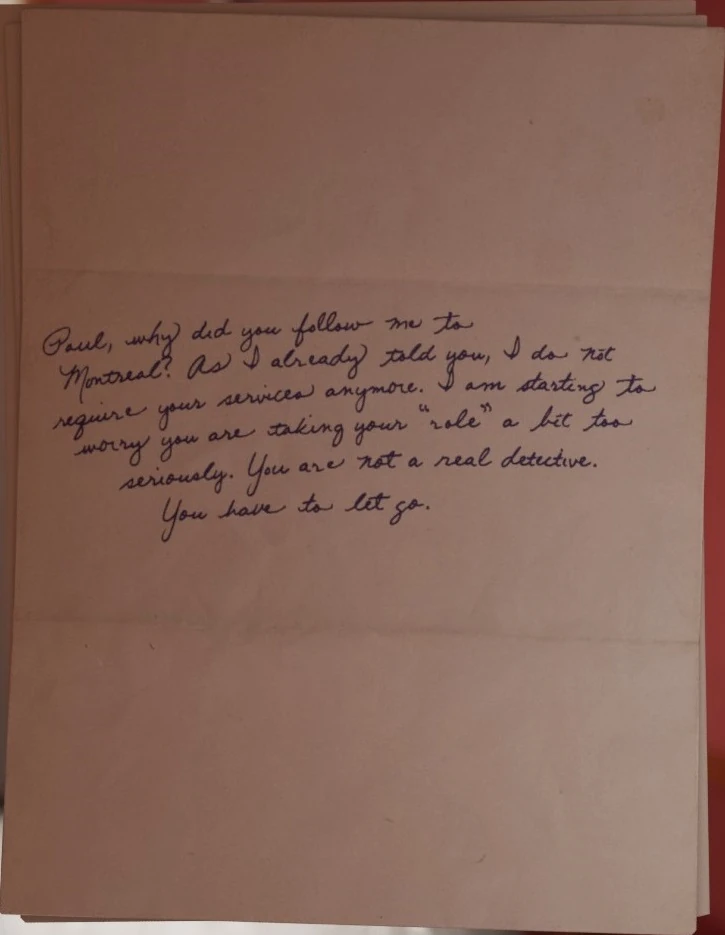 Paul, why did you follow me to
Montreal? As I already told you, I do not
require your services anymore. I am starting to
worry you are taking your "role" a bit too
seriously. You are not a real detective.
You have to let go.